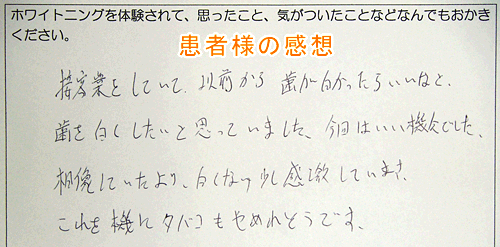 ホワイトニングを体験されて、思ったこと、気がついたことなどなんでもおかき
ください。
患者様の感想
接客業をしていて、以前から歯が白かったらいいなと、
歯を白くしたいと思っていました、今回はいい機会でした、
想像していたより、白くなり少し感激しています、
これを機にタバコもやめれそうです。